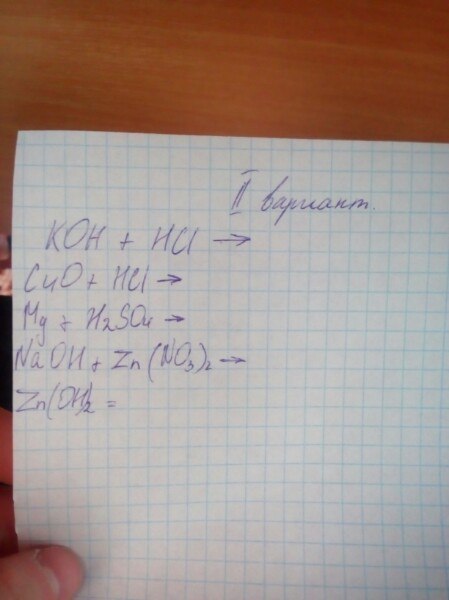 II вариант.
KOH + HCl →
CuO + HCl →
Mg + H2SO4 →
NaOH + Zn(NO3)2 →
Zn(OH)2 =